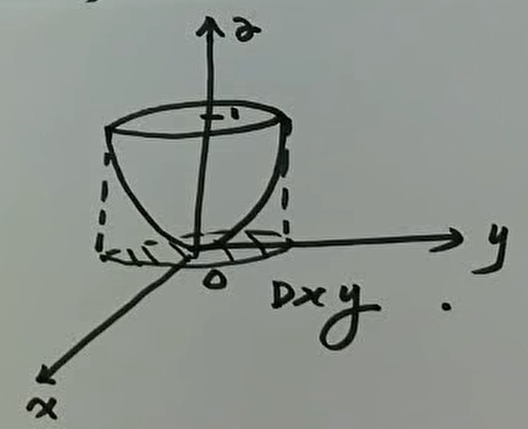 z
1
y
0
Dxy
x